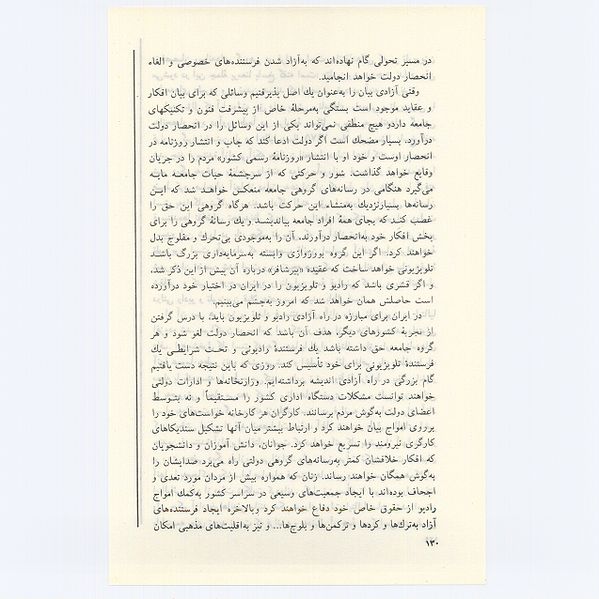 در مسیر تحولی گام نهاده‌اند که به‌آزاد شدن فرستنده‌های خصوصی و الغاء
انحصار دولت خواهد انجامید.
وقتی آزادی بیان را به‌عنوان یك اصل پذیرفتیم وسائلی که برای بیان افکار
و عقاید موجود است بستگی به‌مرحلهٔ خاص از پیشرفت فنون و تکنیکهای
جامعه دارد و هیچ منطقی نمی‌تواند یکی از این وسائل را در انحصار دولت
درآورد. بسیار مضحك است اگر دولت ادعا کند که چاپ و انتشار روزنامه در
انحصار اوست و خود او با انتشار «روزنامهٔ رسمی کشور» مردم را در جریان
وقایع خواهد گذاشت. شور و حرکتی که از سرچشمهٔ حیات جامعه مایه
می‌گیرد هنگامی در رسانه‌های گروهی جامعه منعکس خواهد شد که این
رسانه‌ها بسیارنزدیك به‌منشاء این حرکت باشد. هرگاه گروهی این حق را
غصب کند که بجای همهٔ افراد جامعه بیاندیشد و یك رسانهٔ گروهی را برای
پخش افکار خود به‌انحصار درآورند، آن را به‌موجودی بی‌تحرك و مفلوج بدل
خواهند کرد. اگر این گروه بورژوازی وابسته به‌سرمایه‌داری بزرگ باشد
تلویزیونی خواهد ساخت که عقیده «پیرشافر» درباره آن پیش از این ذکر شد،
و اگر قشری باشد که رادیو و تلویزیون را در ایران در اختیار خود درآورده
است حاصلش همان خواهد شد که امروز به‌چشم می‌بینیم.
در ایران برای مبارزه در راه آزادی رادیو و تلویزیون باید، با درس گرفتن
از تجربهٔ کشورهای دیگر، هدف آن باشد که انحصار دولت لغو شود و هر
گروه جامعه حق داشته باشد یك فرستندهٔ رادیوئی و تحت شرایطی یك
فرستندهٔ تلویزیونی برای خود تأسیس کند. روزی که باین نتیجه دست یافتیم
گام بزرگی در راه آزادی اندیشه برداشته‌ایم. وزارتخانه‌ها و ادارات دولتی
خواهند توانست مشکلات دستگاه اداری کشور را مستقیماً و نه بتوسط
اعضای دولت به‌گوش مردم برسانند. کارگران هر کارخانه خواست‌های خود را
برروی امواج بیان خواهند کرد و ارتباط بیشتر میان آنها تشکیل سندیکاهای
کارگری نیرومند را تسریع خواهد کرد. جوانان، دانش آموزان و دانشجویان
که افکار خلاقشان کمتر به‌رسانه‌های گروهی دولتی راه می‌برد صدایشان را
به‌گوش همگان خواهند رساند. زنان که همواره بیش از مردان مورد تعدی و
اجحاف بوده‌اند با ایجاد جمعیت‌های وسیعی در سراسر کشور به‌کمك امواج
رادیو از حقوق خاص خود دفاع خواهند کرد وبالاخره ایجاد فرستنده‌های
آزاد به‌ترك‌ها و کردها و ترکمن‌ها و بلوچ‌ها... و نیز به‌اقلیت‌های مذهبی امکان
۱۳۰